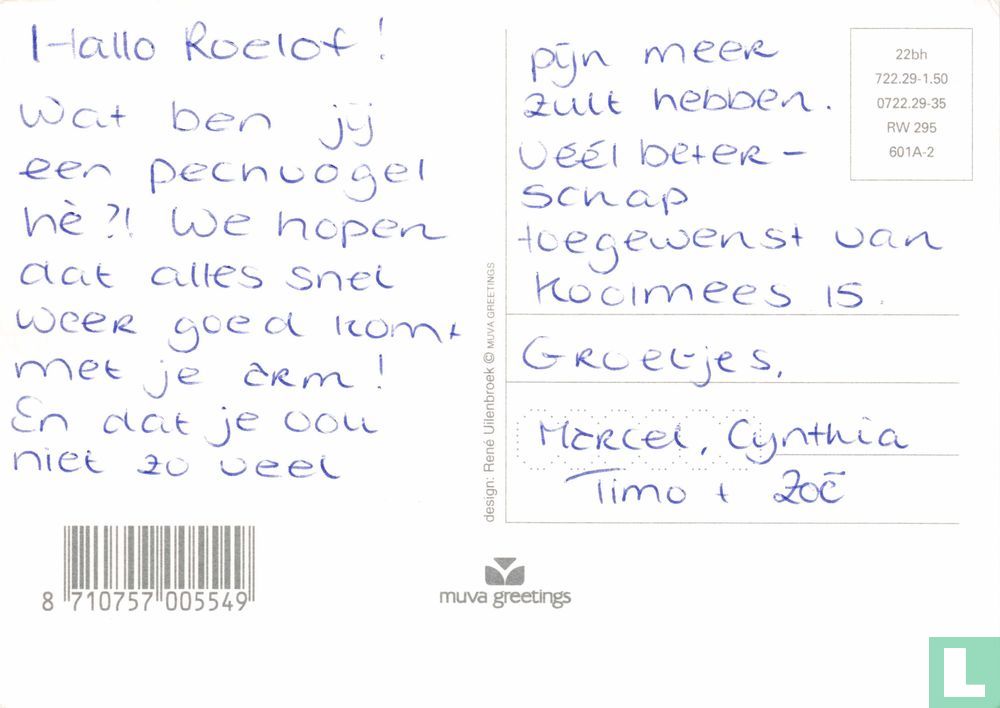 Hallo Roelof!
Wat ben jij
een pechvogel
hè?! We hopen
dat alles snel
weer goed komt
met je arm!
En dat je ook
niet zo veel
pijn meer
zult hebben.
Véél beter-
schap
toegewenst van
Kooimees 15.
Groetjes,
Marcel, Cynthia
Timo + Zoë
22bh
722.29-1.50
0722.29-35
RW 295
601A-2
design: René Uilenbroek © MUVA GREETINGS
8 710757 005549
muva greetings
L